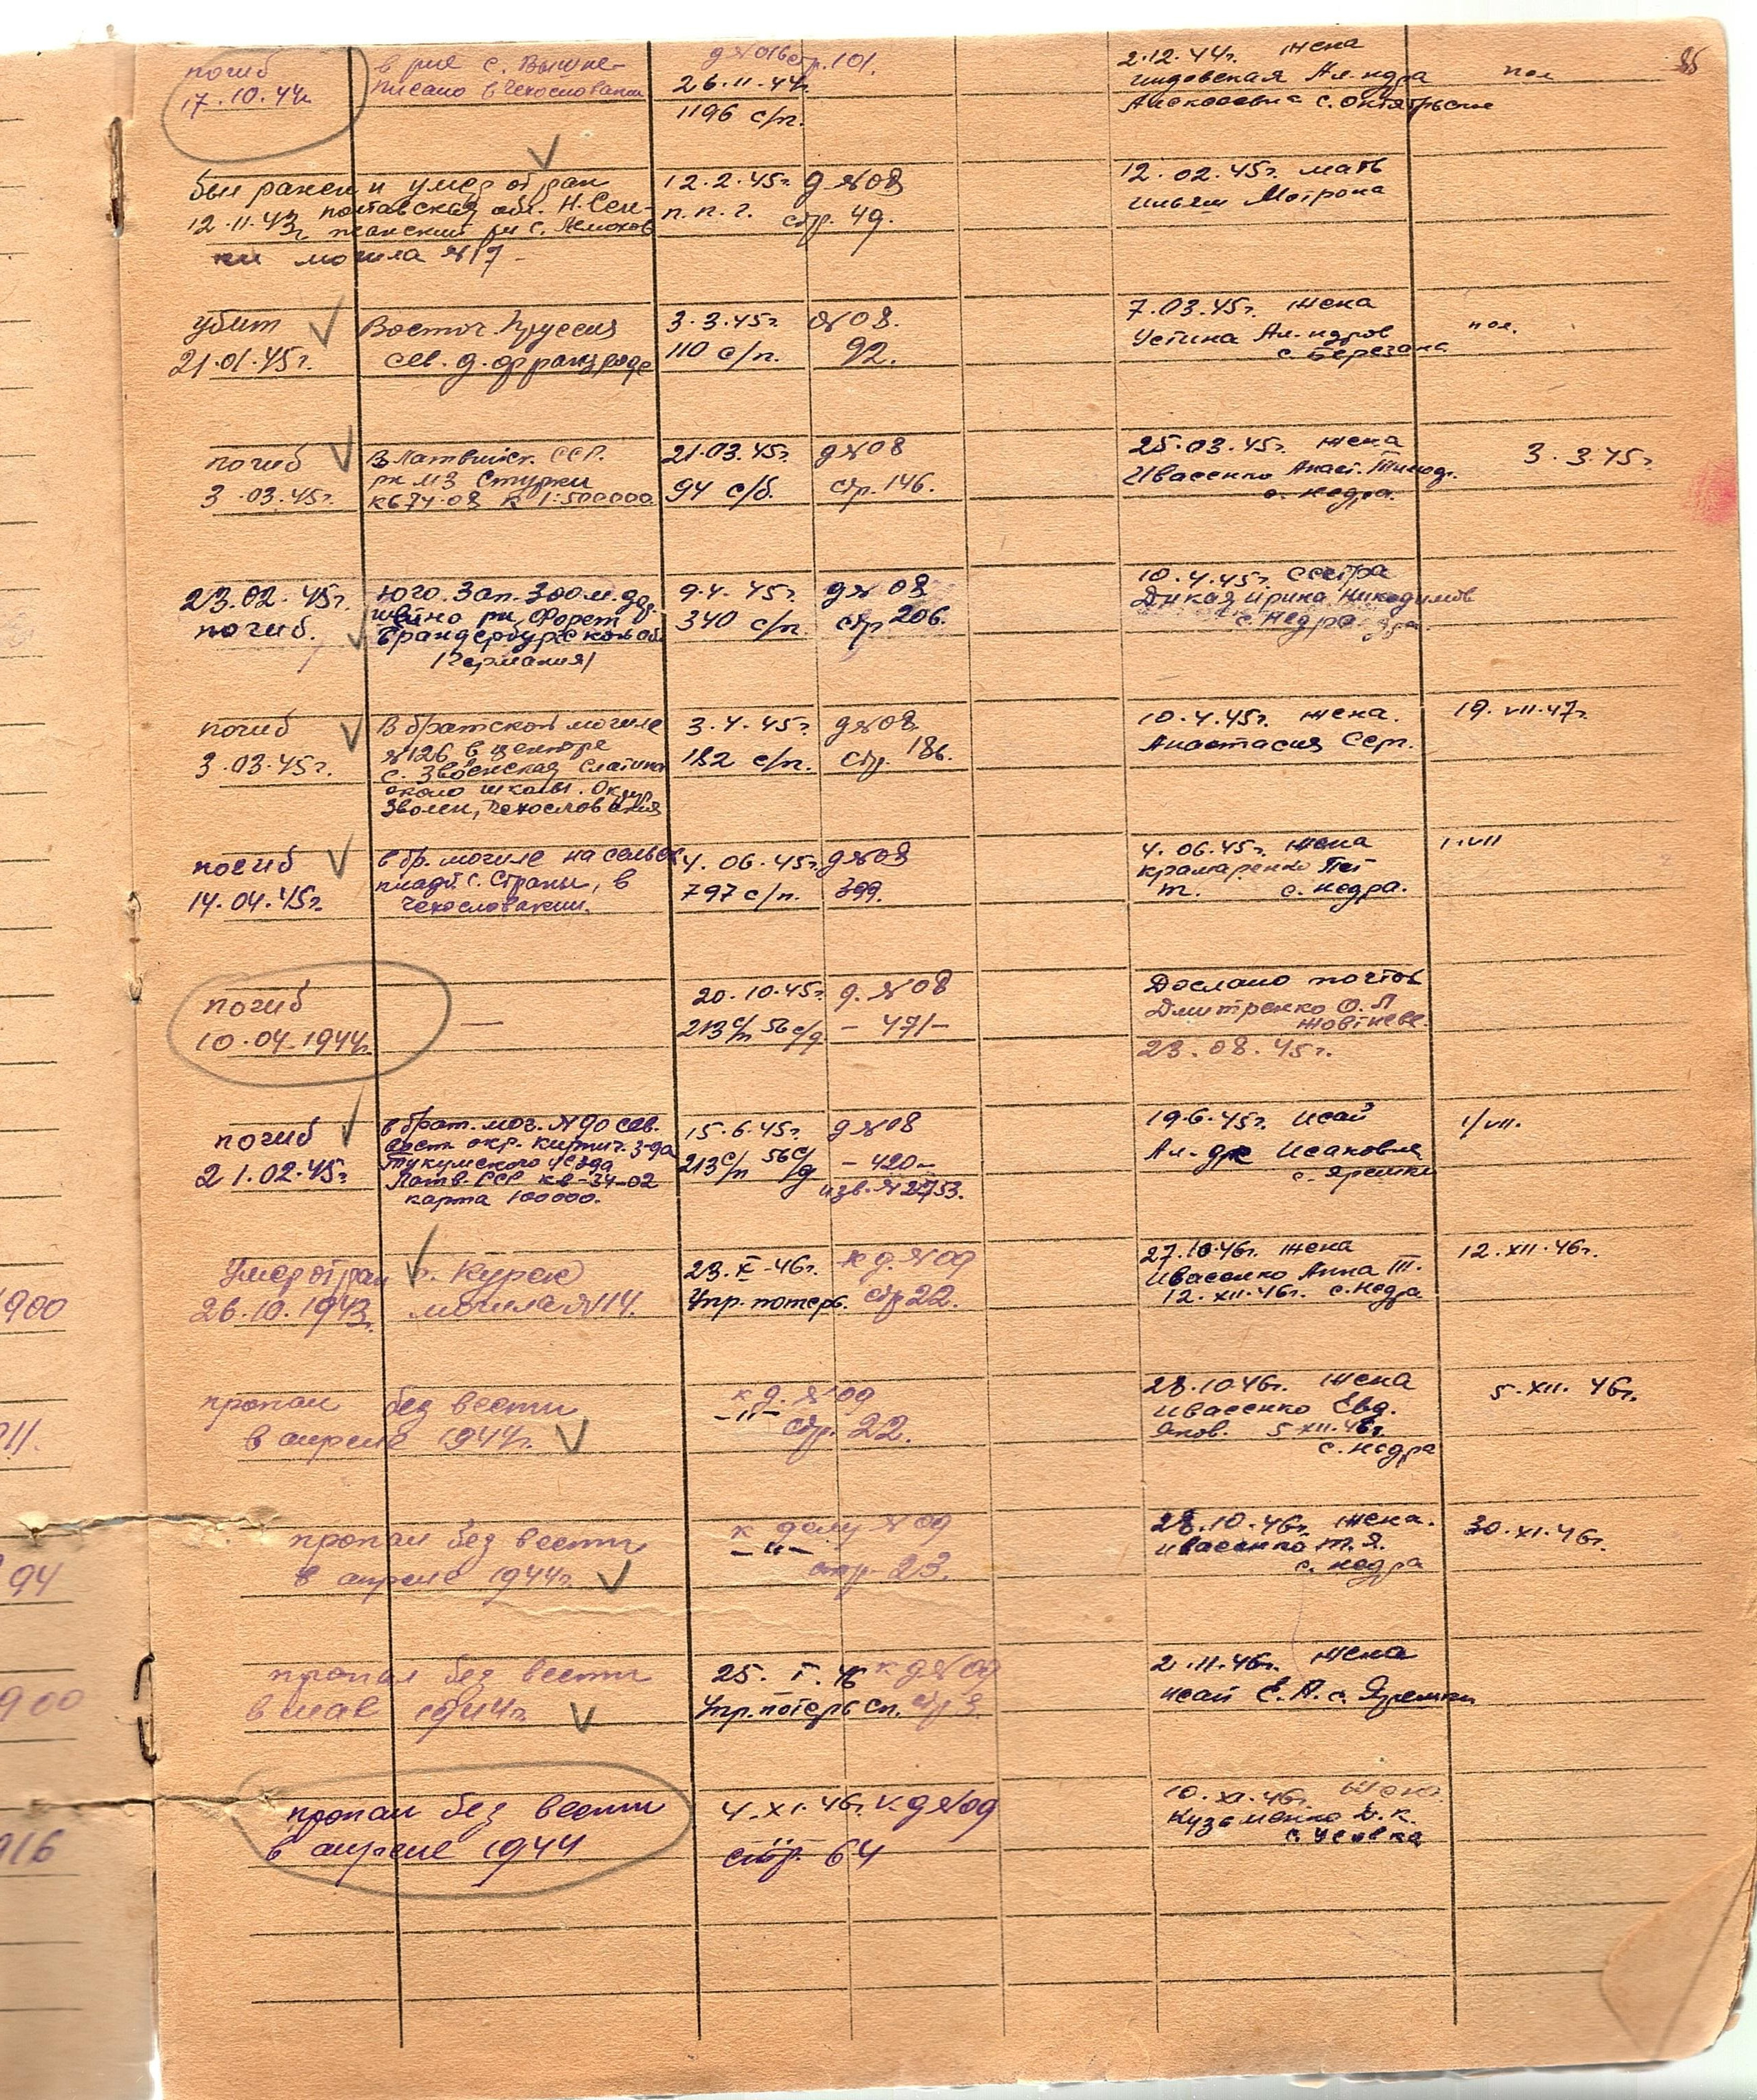 погиб
17.10.44г
в р-не с. Вышне-
писано в Чехословакии
д №016 стр. 101.
26.11.44г
1196 с/п.
2.12.44г. жена
Ал-ндра
с. Октябрьское
пол
был ранен и умер от ран
12.11.43г Полтавская обл. Н. Сен-
жанский рн с.
могила №17
12.2.45г. д №08
п.п.г. стр. 49.
12.02.45г. мать
Мотрона
убит
21.01.45г.
Восточ. Пруссия
сев. д. Францроде
3.3.45г. №08.
110 с/п. 92.
7.03.45г. жена
Устина Ал-ндров
с. Березань
пол.
погиб
3.03.45г.
в Латвийск. ССР.
рн мз Стурки
к 1:500000
21.03.45г. д №08
94 с/б. стр. 146.
25.03.45г. жена
Ивасенко Анаст. Тимоф.
с. Недра.
3.3.45г.
23.02.45г.
погиб.
Юго. Зап. 300 м. дер.
рн, Форст
Бранденбургской обл
(Германия)
9.4.45г. д № 08
340 с/п. стр 206.
10.4.45г. сестра
Дикая Ирина Никодимов
с. Недра
погиб
3.03.45г.
В братской могиле
№126 в центре
с. Зволенская Слатина
около школы. Округ
Зволен, Чехословакия
3.4.45г. д №08
182 с/п. стр. 186.
10.4.45г. жена.
Анастасия Серг.
19.VII.47г.
погиб
14.04.45г.
в бр. могиле на сельск
кладб. с. Страны, в
Чехословакии.
4.06.45г. д №08
797 с/п. 399.
4.06.45г. жена
Крамаренко
т. с. Недра.
1.VII
погиб
10.04.1944г.
—
20.10.45г. д. №08
213 с/п 56 с/д – 471–
Дослано почтов
Дмитренко О.П
Жовтневе.
23.08.45г.
погиб
21.02.45г.
в брат. мог. №90 сев.
вост. окр. кирпич. з-да
Тукумского уезда
Латв. ССР кв-34-02
карта 100000.
15.6.45г. д №08
213 с/п 56 с/д – 420–
изв. №2753.
19.6.45г. Исай
Ал-др Исакович
с. Яремки
1/VII.
Умер от ран
26.10.1943г.
г. Курск
могила №14.
23.X-46г. к д. №09
Упр. потерь. стр 22.
27.10.46г. жена
Ивасенко Анна Т.
12.XII.46г. с. Недра
12.XII.46г.
пропал без вести
в апреле 1944г.
к д. №09
–"– стр. 22.
28.10.46г. жена
Ивасенко Евд.
Яков. 5.XII.46г.
с. Недра
5.XII.46г.
пропал без вести
в апреле 1944г.
к делу №09
–"– стр 23.
28.10.46г. жена.
Ивасенко Т.Я.
с. Недра
30.XI.46г.
пропал без вести
в мае 1944г.
25.I.46 к д №09
Упр. потерь сп. стр 9.
2.11.46г. жена
Исай Е.А. с. Яремки
пропал без вести
в апреле 1944
4.XI.46г. к. д №09
стр. 64
10.XI.46г. жена
Кузьменко Д.К.
с. Усовка
900
911.
94
900
916